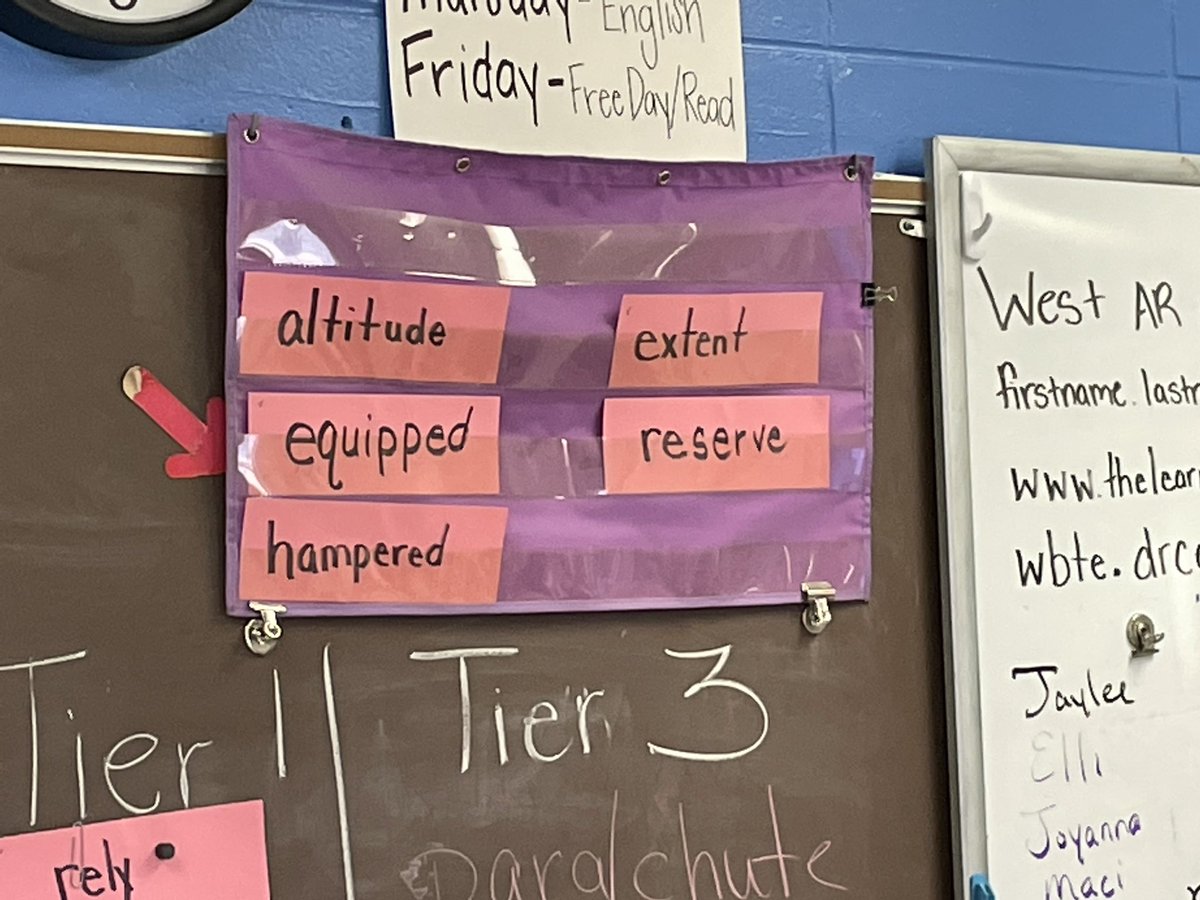 English
Friday-Free Day/Read
altitude
extent
equipped
reserve
hampered
Tier 1
Tier 3
rely
para/chute
West AR
firstname.
www.
wbte.
Jaylee
Elli
Joyanna
Maci